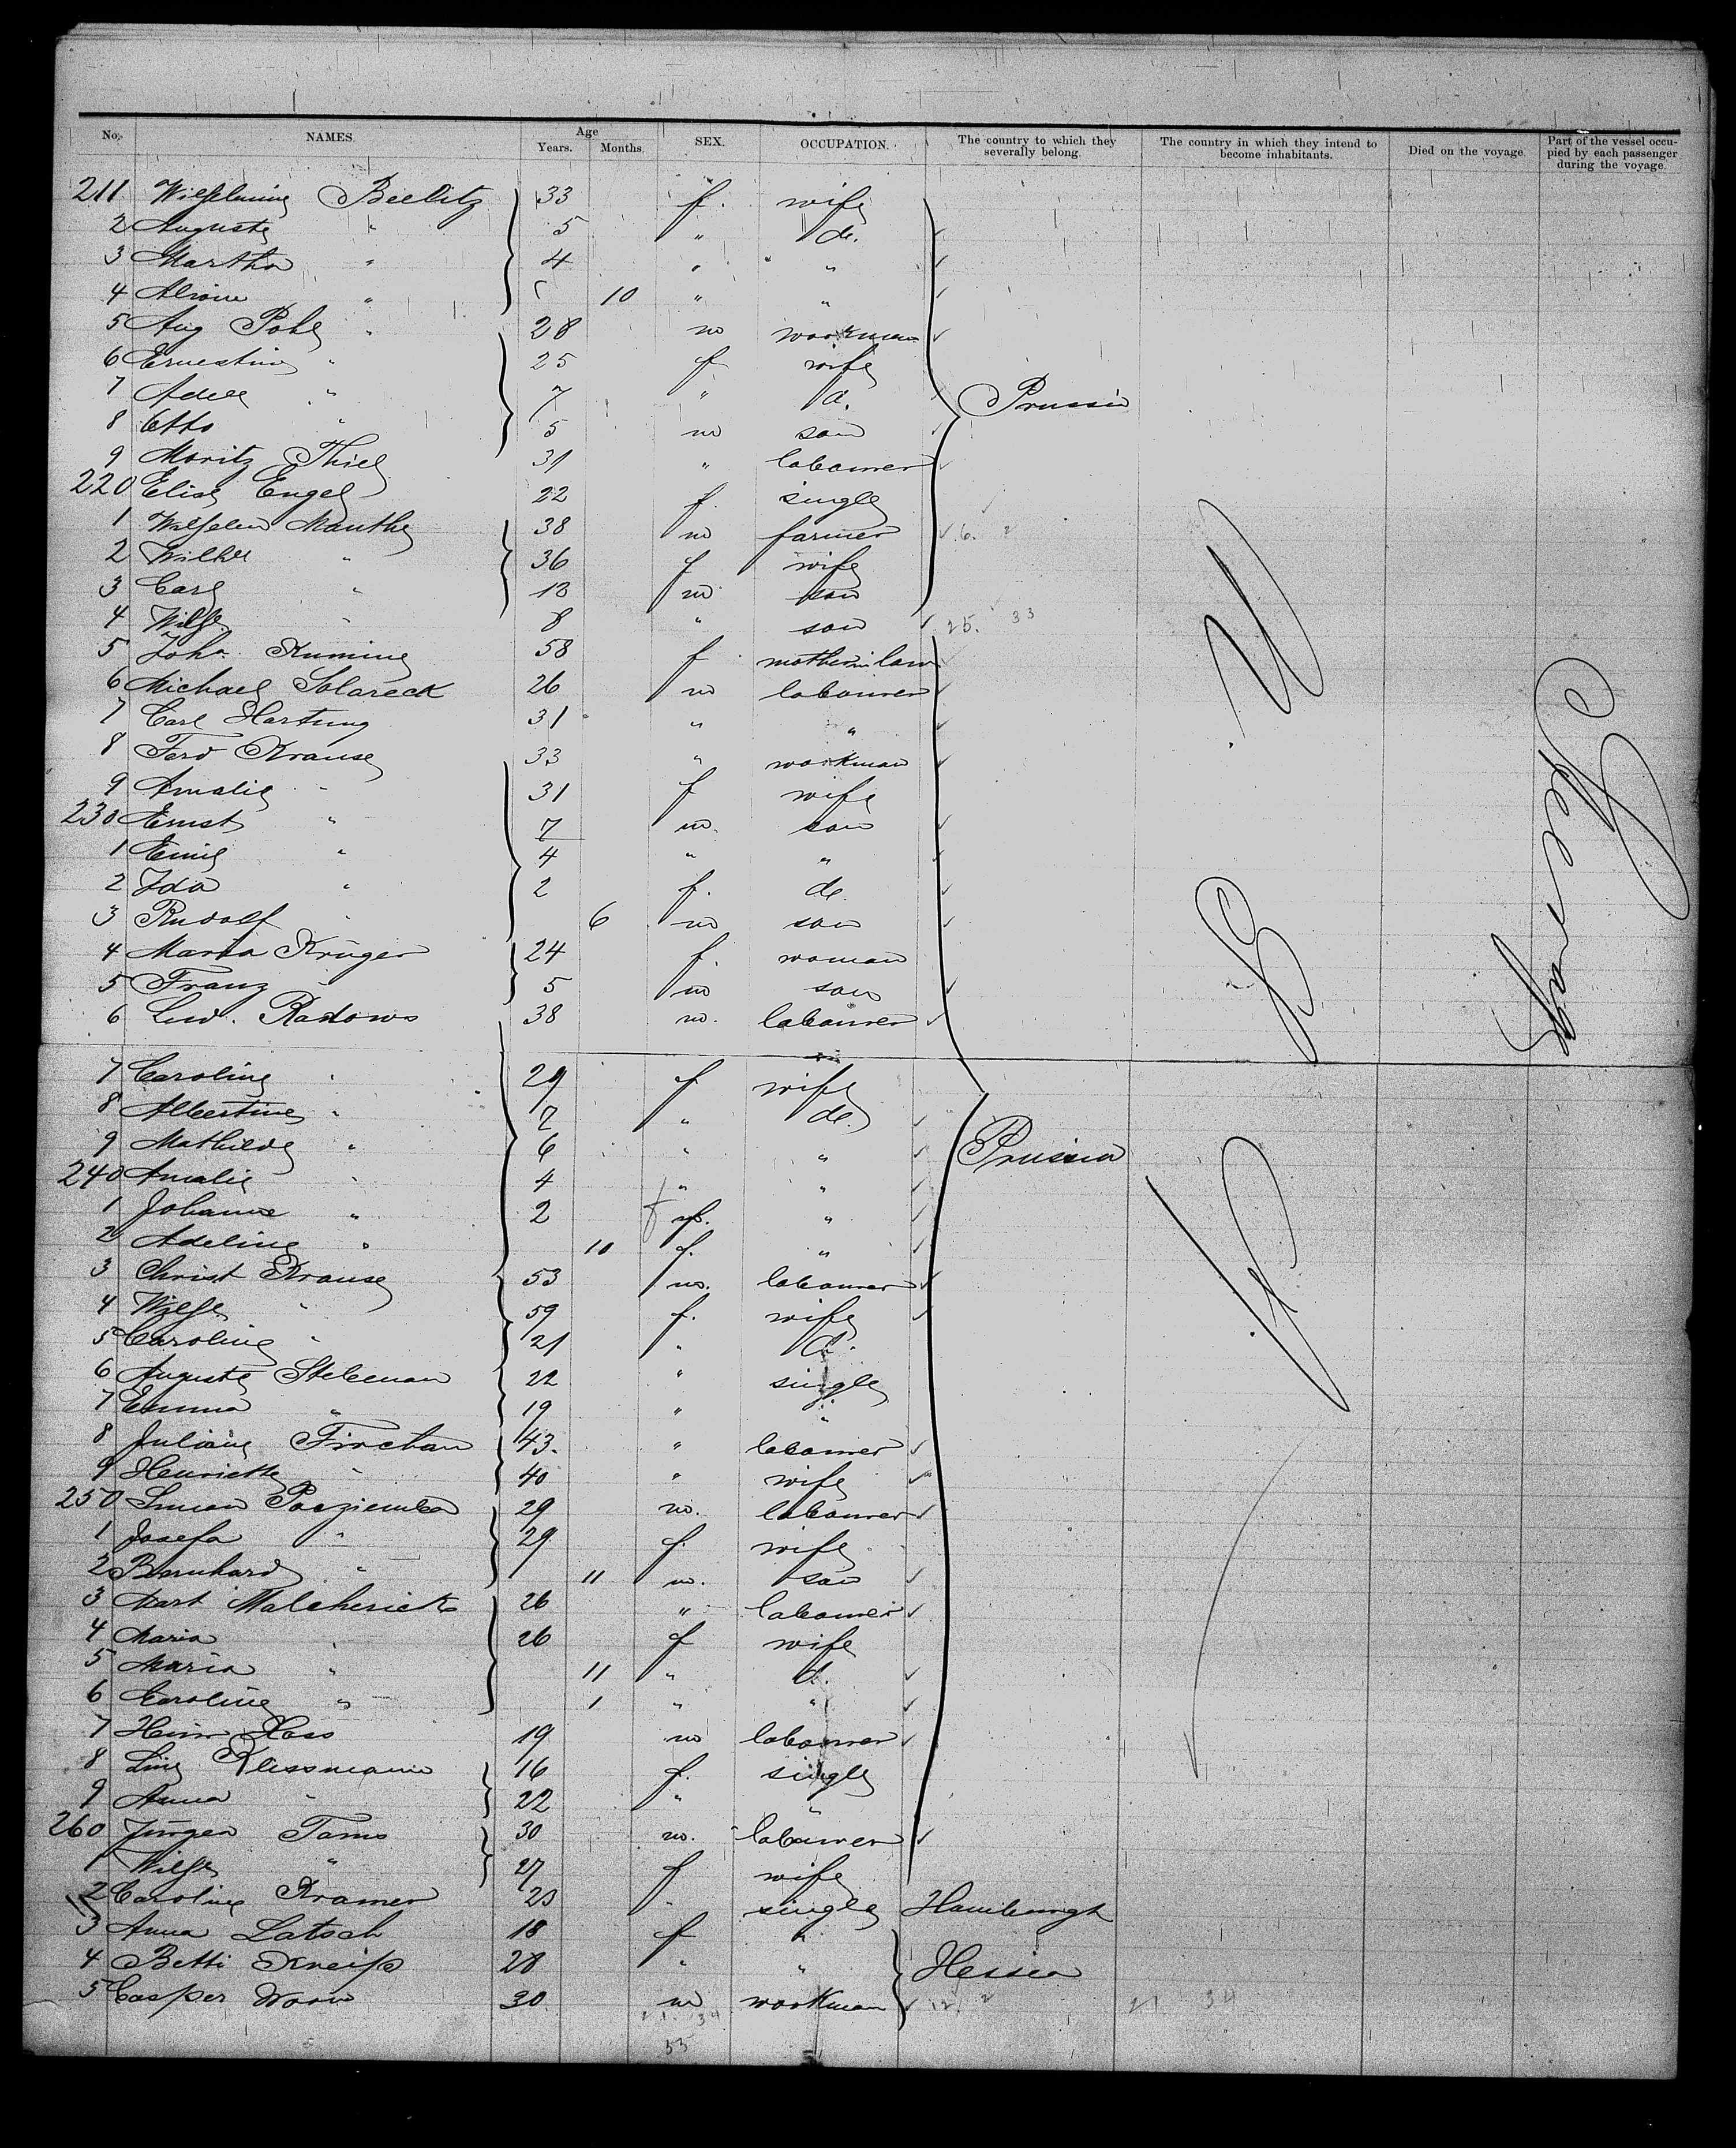 No. NAMES. Age Years. Months. SEX. OCCUPATION. The country to which they severally belong. The country in which they intend to become inhabitants. Died on the voyage. Part of the vessel occupied by each passenger during the voyage.
211 Wilhelmine Beelitz 33 f. wife
2 Auguste " 5 " de.
3 Martha " 4 " "
4 " 10 " "
5 Aug Pohl " 28 m workman
6 Ernestine " 25 f wife
7 Adele " 7 " d. Prussia
8 Otto " 5 m son
9 Moritz Thiel 31 " labourer
220 Elise Engel 22 f. single
1 Wilhelm Manthe 38 m farmer 6.
2 " 36 f wife
3 Carl " m son
4 Wilh " 8 " son 25. 33
5 Joha. 58 f motherinlaw
6 Michael Solareck 26 m labourer
7 Carl Hartung 31 " "
8 Ferd Krause 33 " workman
9 Amalie " 31 f wife
230 Ernst " 7 m. son
1 Emil " 4 " "
2 Ida " 2 f. de
3 Rudolf " 6 m son
4 Maria Krüger 24 f. woman
5 Franz 5 m son
6 Lud. Radows 38 m. labourer
7 Caroline " 29 f wife
8 Albertine " 7 " de.
9 Mathilde " 6 " " Prussia
240 Amalie " 4 " "
1 Johanne " 2 f "
2 Adeline " 10 f. "
3 Christ Krause 53 m. labourer
4 Wilh " 59 f. wife
5 Caroline " 21 " d.
6 Auguste Stebenan 22 " single
7 Emma " 19 " "
8 43. " labourer
9 Henriette " 40 " wife
250 29 m. labourer
1 Josefa " 29 f. wife
2 Bernhard " 11 m. son
3 Mart Malcherick 26 " labourer
4 Maria " 26 f wife
5 Maria " 11 " d.
6 Caroline " 1 " "
7 Heinr Hass 19 m labourer
8 Line Klessmann 16 f. single
9 Anna " 22 " "
260 Jürgen Tams 30 m. labourer
1 Wilh " 27 f wife
2 Caroline Kramer " single Hamburgh
3 Anna Latsch 18 f "
4 Betti Kneip 28 " " Hessia
5 Casper 30 m workman 12. 2 21 34
21. 34
55
U
S
A
Steerage